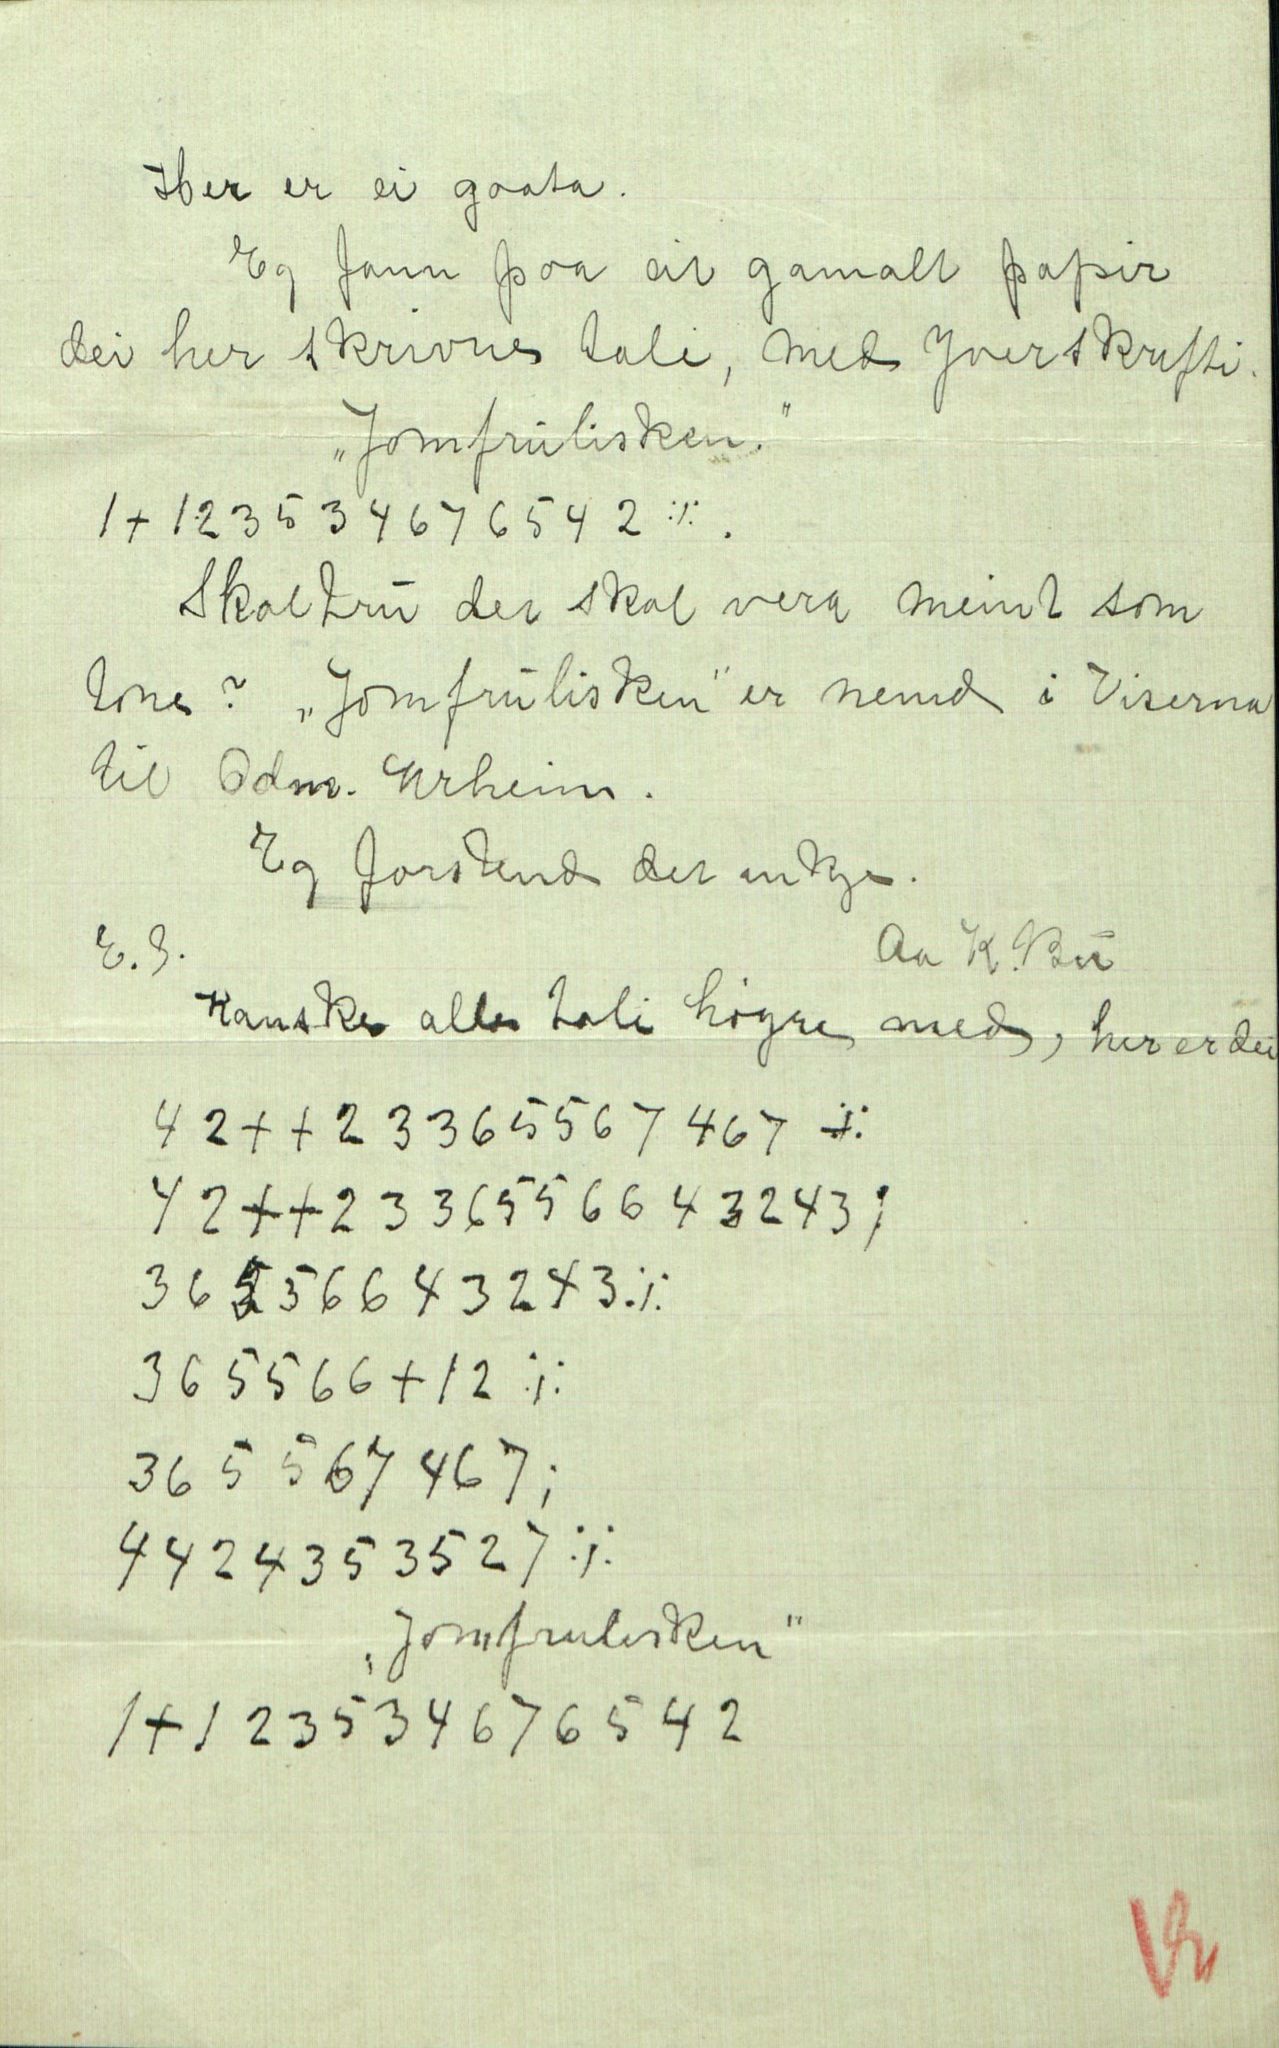 Her er ei gaata.
Eg fann paa eit gamalt papir
dei her skrivne tali, med Yverskrifti.
„Jomfrulisken."
1+123534676542 :/: .
Skal tru det skal vera meint som
tone? „Jomfrulisken" er nemd i Viserna
til Odm. Urheim.
Eg forstend det inkje.
Aa K. Bu
E.S.
Kanske alle tali høyre med, her er dei
42++23365567467 :/:
42++233655664 3243;
36556643243 :/:
365566+12 :/:
365567467;
4424353527 :/:
„Jomfrulisken"
1+123534676542